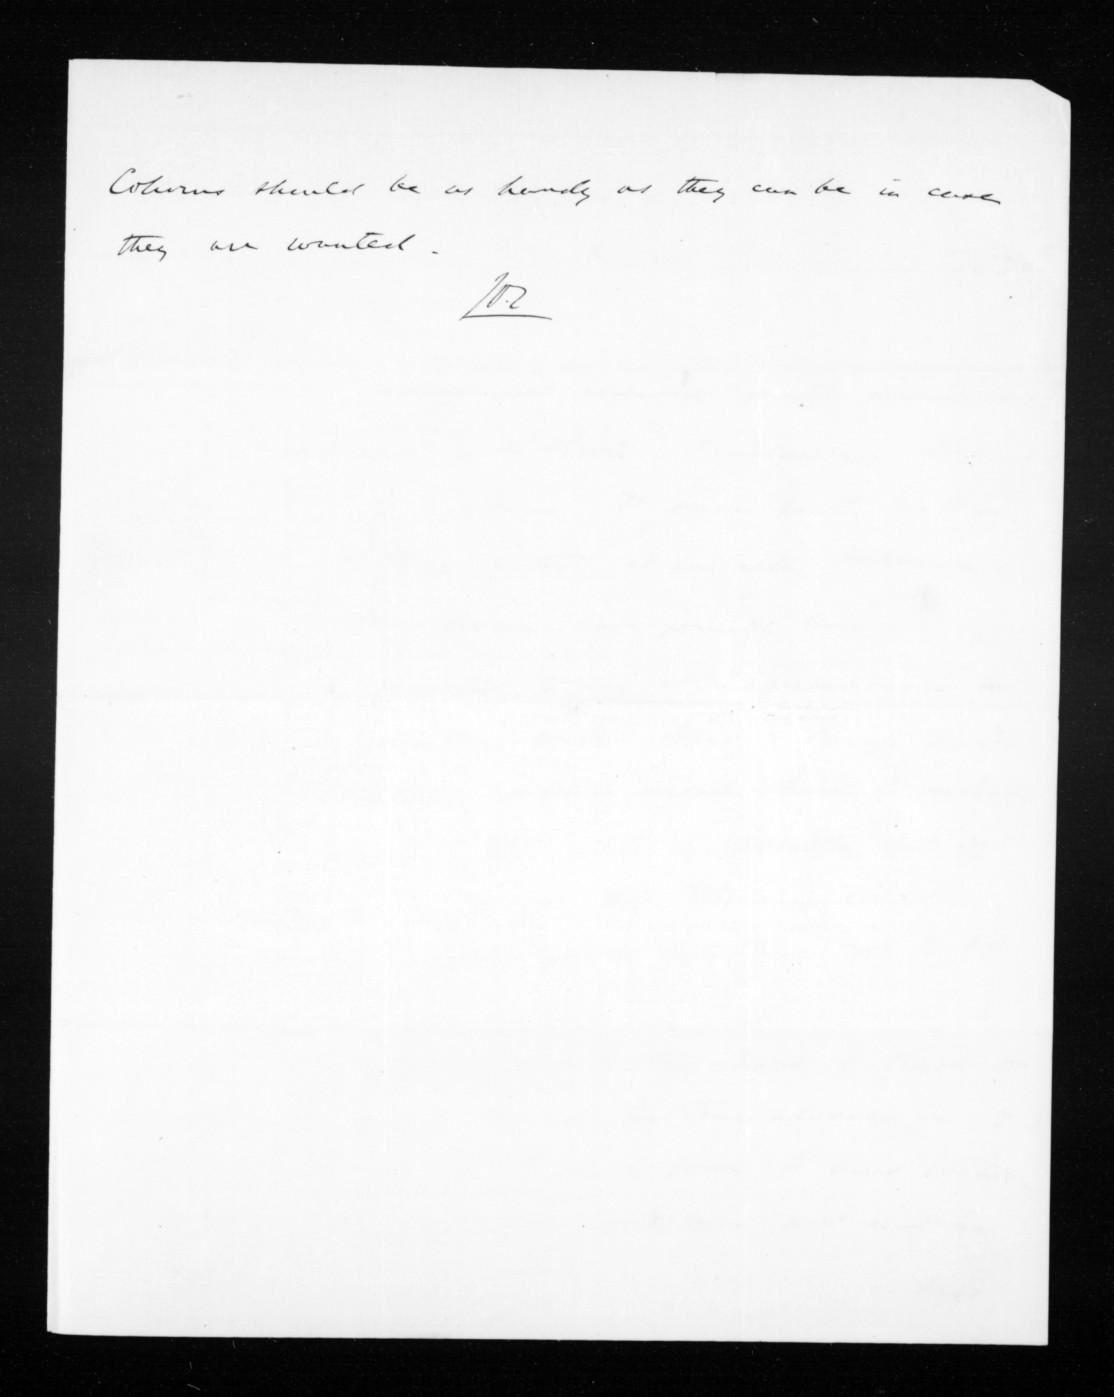 Columns should be as handy as they can be in case
they are wanted.